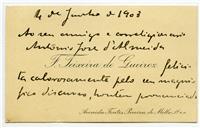 4 de Junho de 1903
Ao seu amigo e correligionario
Antonio José d'Almeida
F. Teixeira de Queiroz felici-
ta calorosamente pelo seu magni-
fico discurso, hontem pronunciado
Avenida Fontes Pereira de Mello